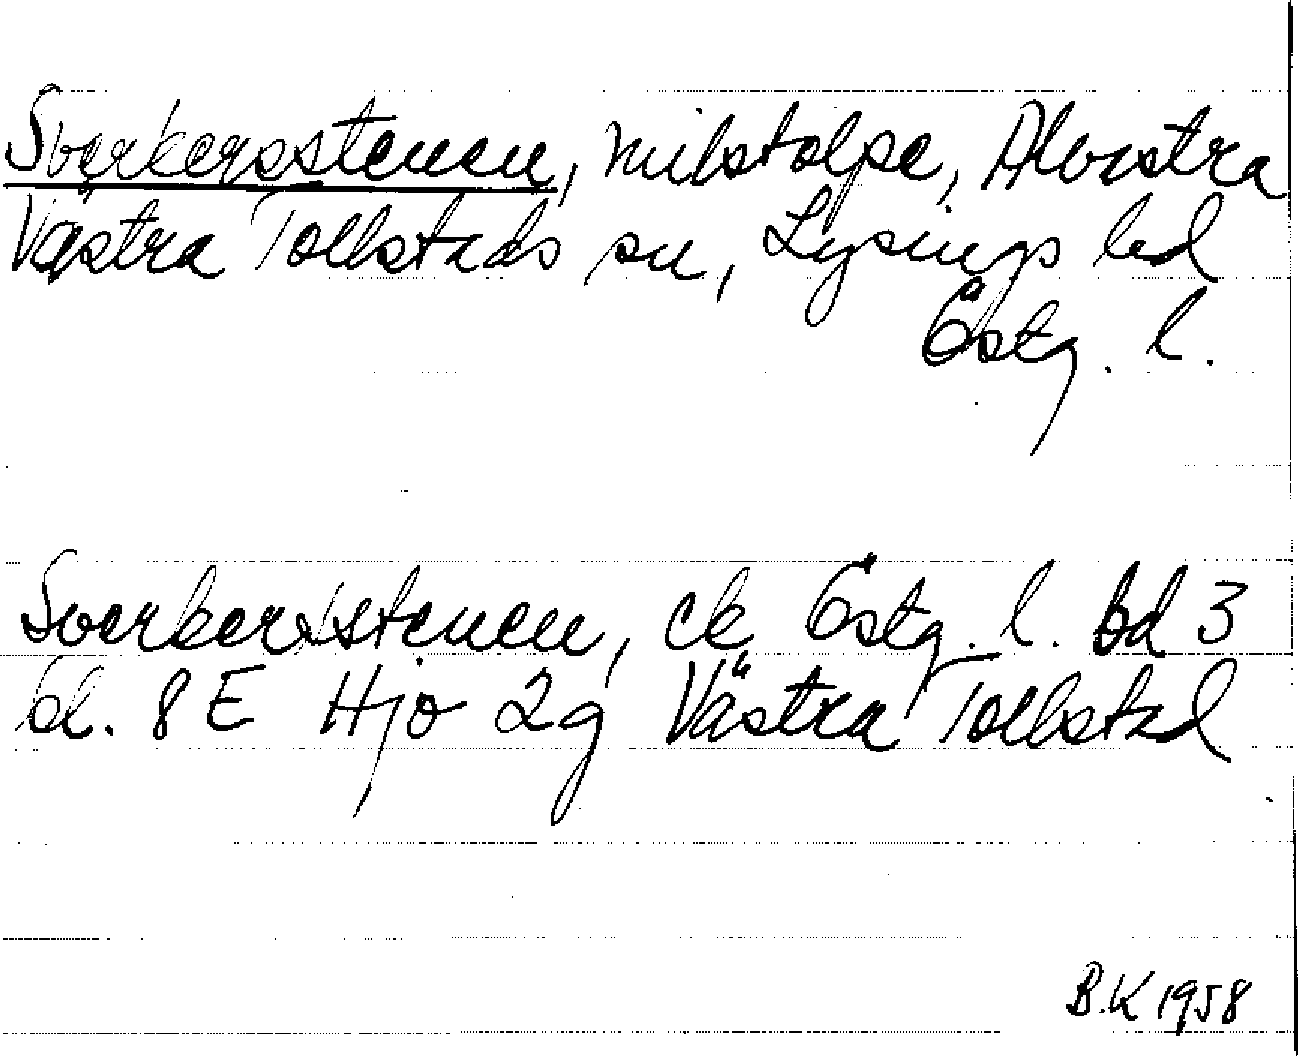 Sverkersstenen, milstolpe, Alvastra
Västra Tollstads sn, Lysings hd
Östg. l.
Sverkersstenen, ek Östg. l. bd 3
bl. 8 E Hjo 2g Västra Tollstad
B.K 1958